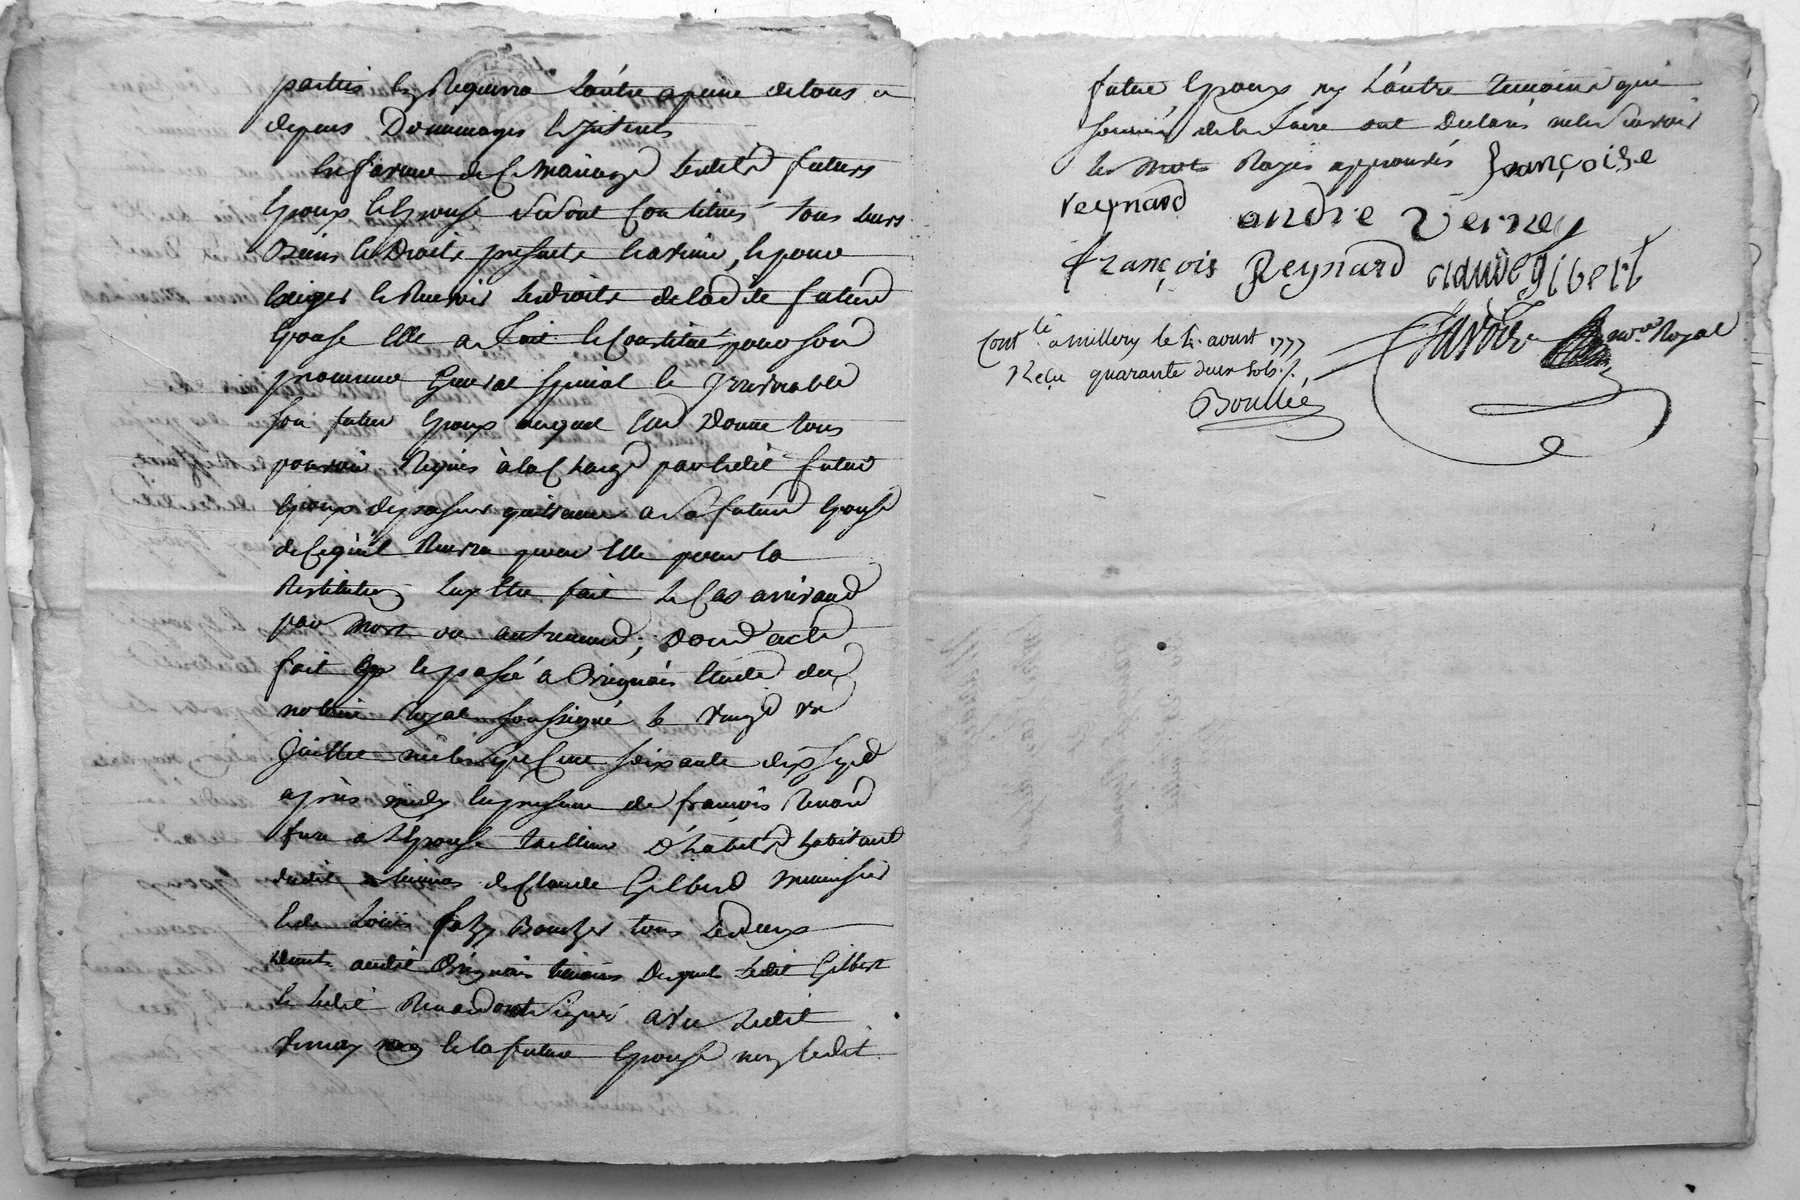 parties En Requerra Lautre a peine de tous
depens Dommages Et Interets
En faveur de Ce mariage Lesdits futurs
Epoux Et Epouse se sont Constitués tous Leurs
Biens Et Droits presents Et avenir, Et pour
Exiger Et Recevoir Les droits de ladite future
Epouse Elle a fait Et Constitué pour son
procureur General Special Et Irrevocable
son futur Epoux auquel Elle Donne tous
pouvoirs Requis à la Charge par ledit futur
Epoux de passer quittance a sa future Epouse
de Ce qu'il Recevra pour Elle pour la
Restitution Luy Etre fait Le Cas arrivant
par Mort ou autrement, Dont acte
fait Et passé a Brignais Etude du
notaire Royal soussigné le vingt
juillet mil sept Cent soixante dix sept
après midy En presence de françois Renard
de Claude Gilbert menuisier
Et de Louis fazy Boucher tous Les deux
audit Brignais temoins Lesquels Ledit Gilbert
Et Ledit Renard ont Signé avec Ledit
vernay Et la future Epouse non Ledit
futur Epoux ny Lautre temoins qui
de Le faire ont Declaré ne le Savoir
Les Mots Rayés approuvés françoise
reynard andre verney
françois Reynard claude gibert
Not.re Royal
Cont.lé a millery le 2. aoust 1777
Reçu quarante deux sols ./.
Boullée